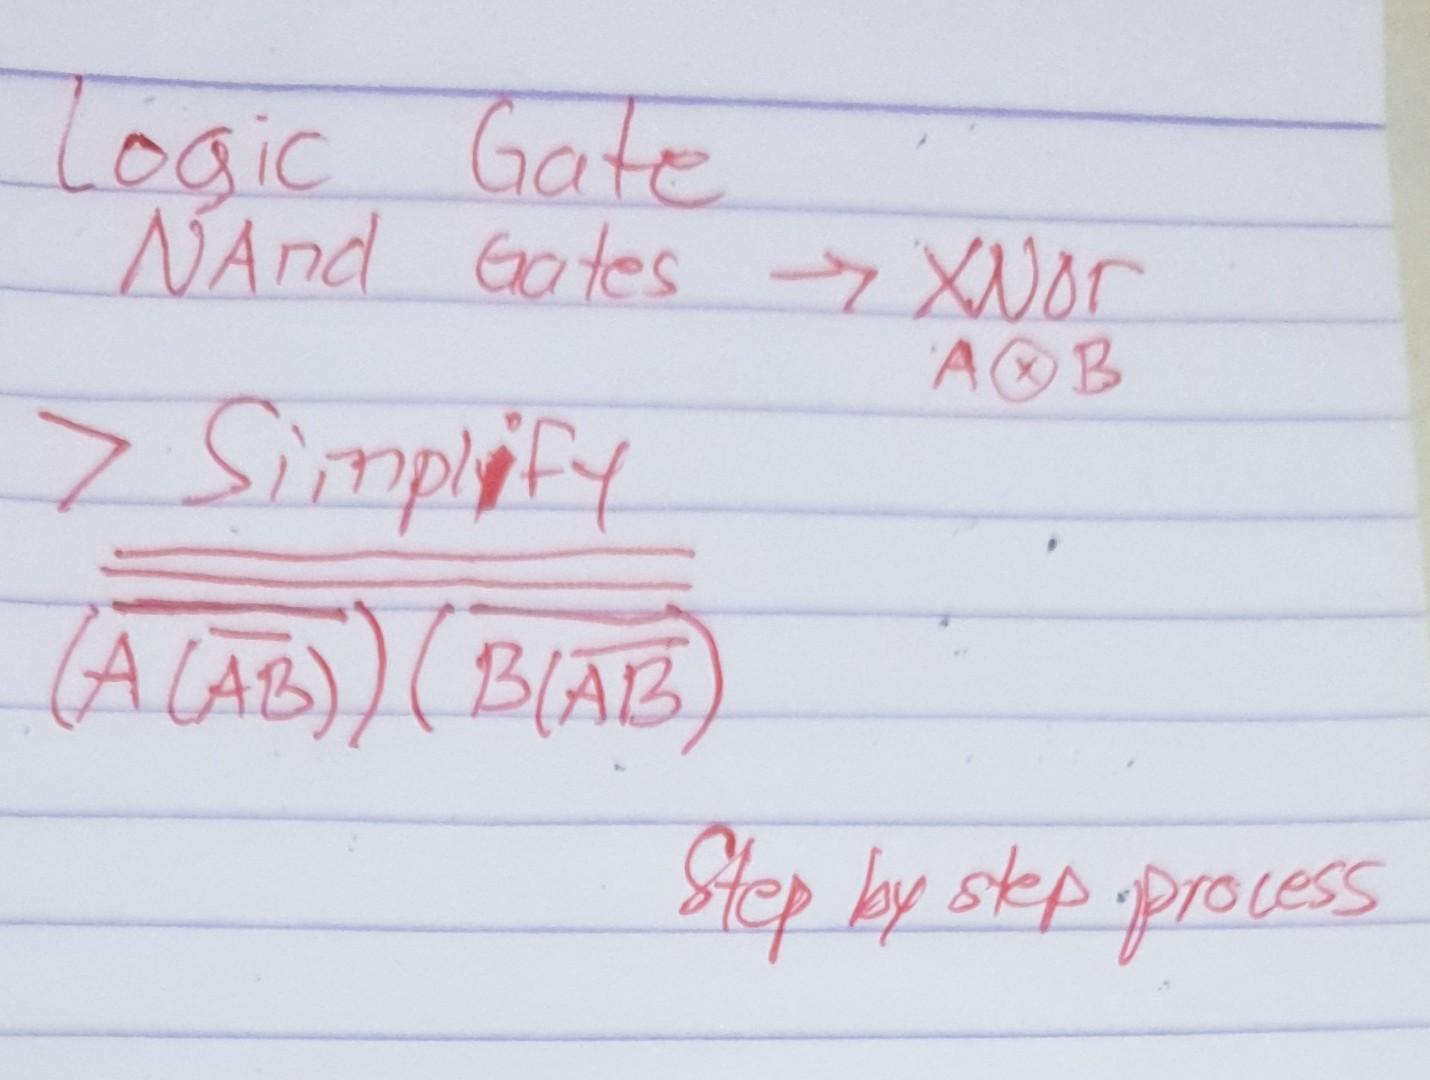 Logic Gate
NAnd Gates → XNor
A ⊗ B
> Simplify
$\overline{\overline{(\overline{A(\overline{AB})})(\overline{B(\overline{AB}})}}$
Step by step process